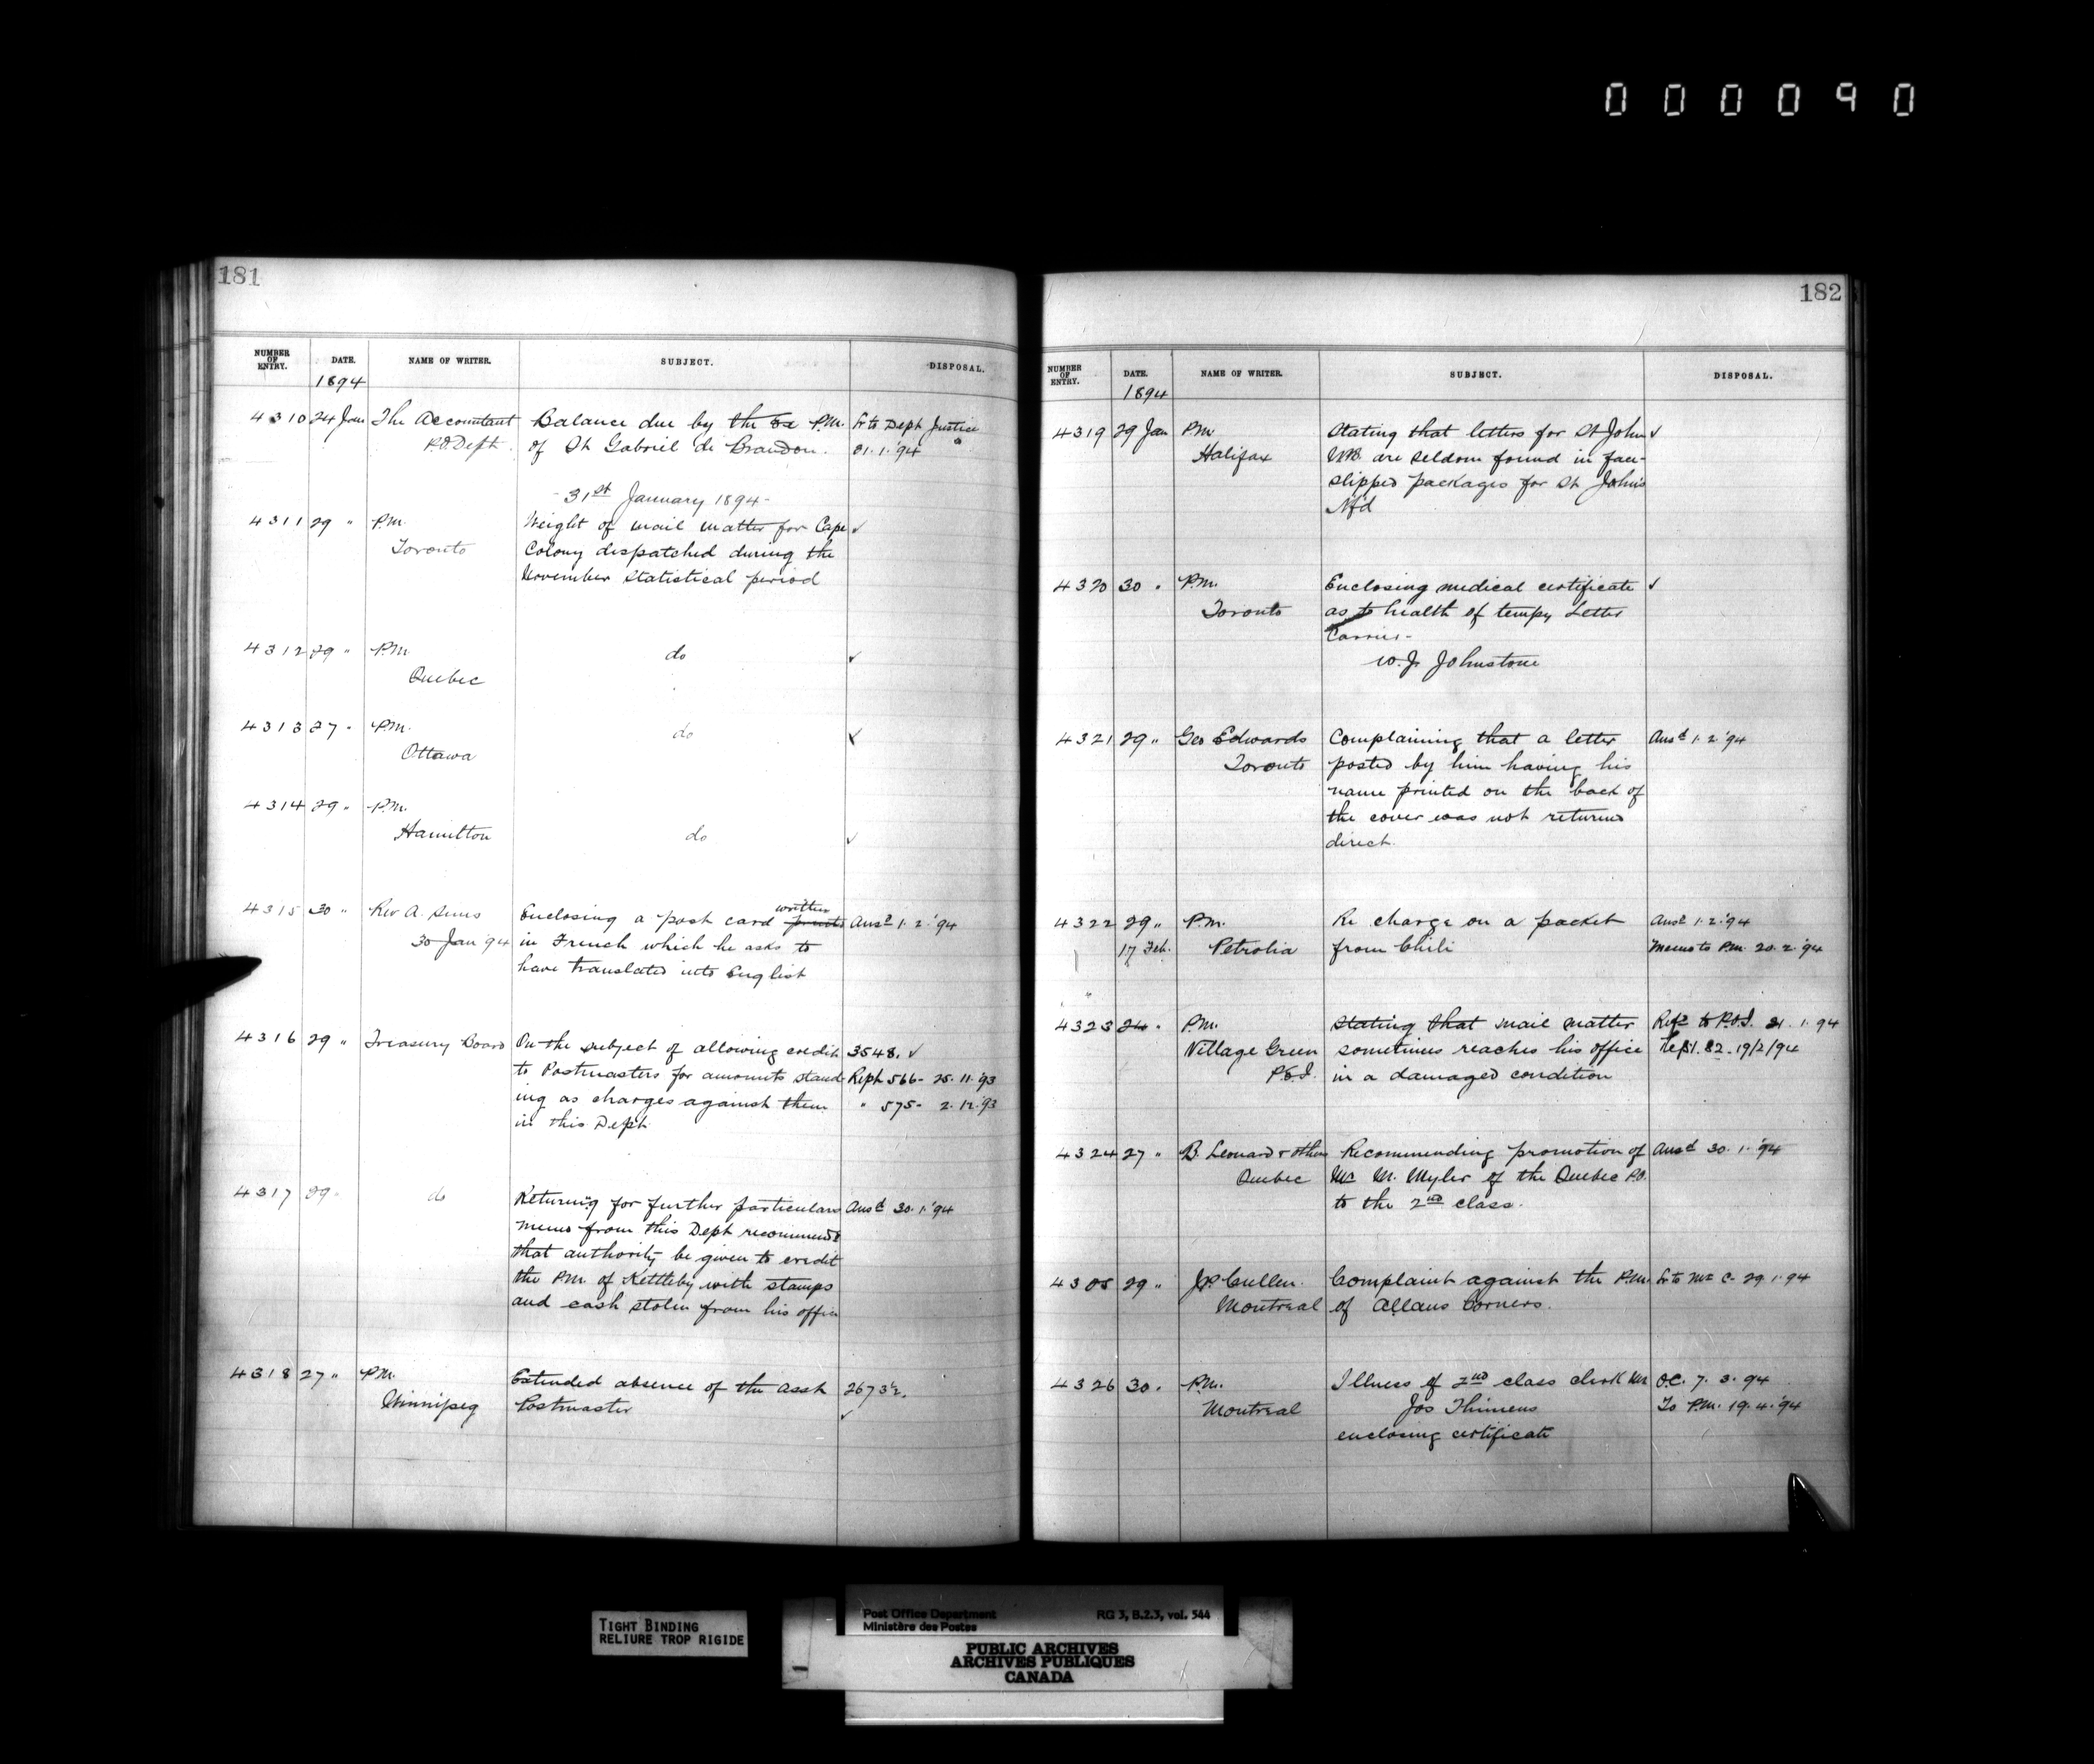 000090
181
NUMBER OF ENTRY. DATE. NAME OF WRITER. SUBJECT. DISPOSAL.
1894
4310 24 Jan The Accountant Balance due by the Ex P.M. Lr to Dept Justice
P.O. Dept. of St Gabriel de Brandon. 31.1.'94
- 31st January 1894 -
4311 29 " P.M. Weight of mail matter for Cape ✓
Toronto Colony dispatched during the
November statistical period
4312 29 " P.M. do ✓
Quebec
4313 27 " P.M. do ✓
Ottawa
4314 29 " P.M.
Hamilton do ✓
written
4315 30 " Rev A. Sims Enclosing a post card printed Ansd 1.2.'94
30 Jan '94 in French which he asks to
have translated into English
4316 29 " Treasury Board On the subject of allowing credit 3548. ✓
to Postmasters for amounts stand- Rept 566 - 25.11.'93
ing as charges against them " 575 - 2.12.'93
in this Dept.
4317 29 " do Returning for further particulars Ansd 30.1.'94
memo from this Dept recommendg
that authority be given to credit
the P.M. of Kettleby with stamps
and cash stolen from his office
4318 27 " P.M. Extended absence of the Asst 2673½.
Winnipeg Postmaster ✓
182
NUMBER OF ENTRY. DATE. NAME OF WRITER. SUBJECT. DISPOSAL.
1894
4319 29 Jan P.M. Stating that letters for St John ✓
Halifax N.B. are seldom found in face-
slipped packages for St John's
Nfd
4320 30 " P.M. Enclosing medical certificate ✓
Toronto as to health of tempy Letter
Carrier -
W.J. Johnstone
4321 29 " Geo Edwards Complaining that a letter Ansd 1.2.'94
Toronto posted by him having his
name printed on the back of
the cover was not returned
direct.
4322 29 " P.M. Re charge on a packet Ansd 1.2.'94
17 Feb. Petrolia from Chili Memo to P.M. 20.2.'94
4323 24 " P.M. Stating that mail matter Refd to P.O.I. 31.1.94
Village Green sometimes reaches his office Rept. 82. 19/2/94
P.E.I. in a damaged condition
4324 27 " B. Leonard & others Recommending promotion of Ansd 30.1.'94
Quebec Mr M. Myler of the Quebec P.O.
to the 2nd class.
4325 29 " J.P. Cullen. Complaint against the P.M. Lr to Mr C. 29.1.94
Montreal of Allans Corners.
4326 30 . P.M. Illness of 2nd class clerk Mr O.C. 7.3.94
Montreal Jos Thimens To P.M. 19.4.'94
enclosing certificate
TIGHT BINDING
RELIURE TROP RIGIDE
Post Office Department RG 3, B.2.3, vol. 544
Ministère des Postes
PUBLIC ARCHIVES
ARCHIVES PUBLIQUES
CANADA